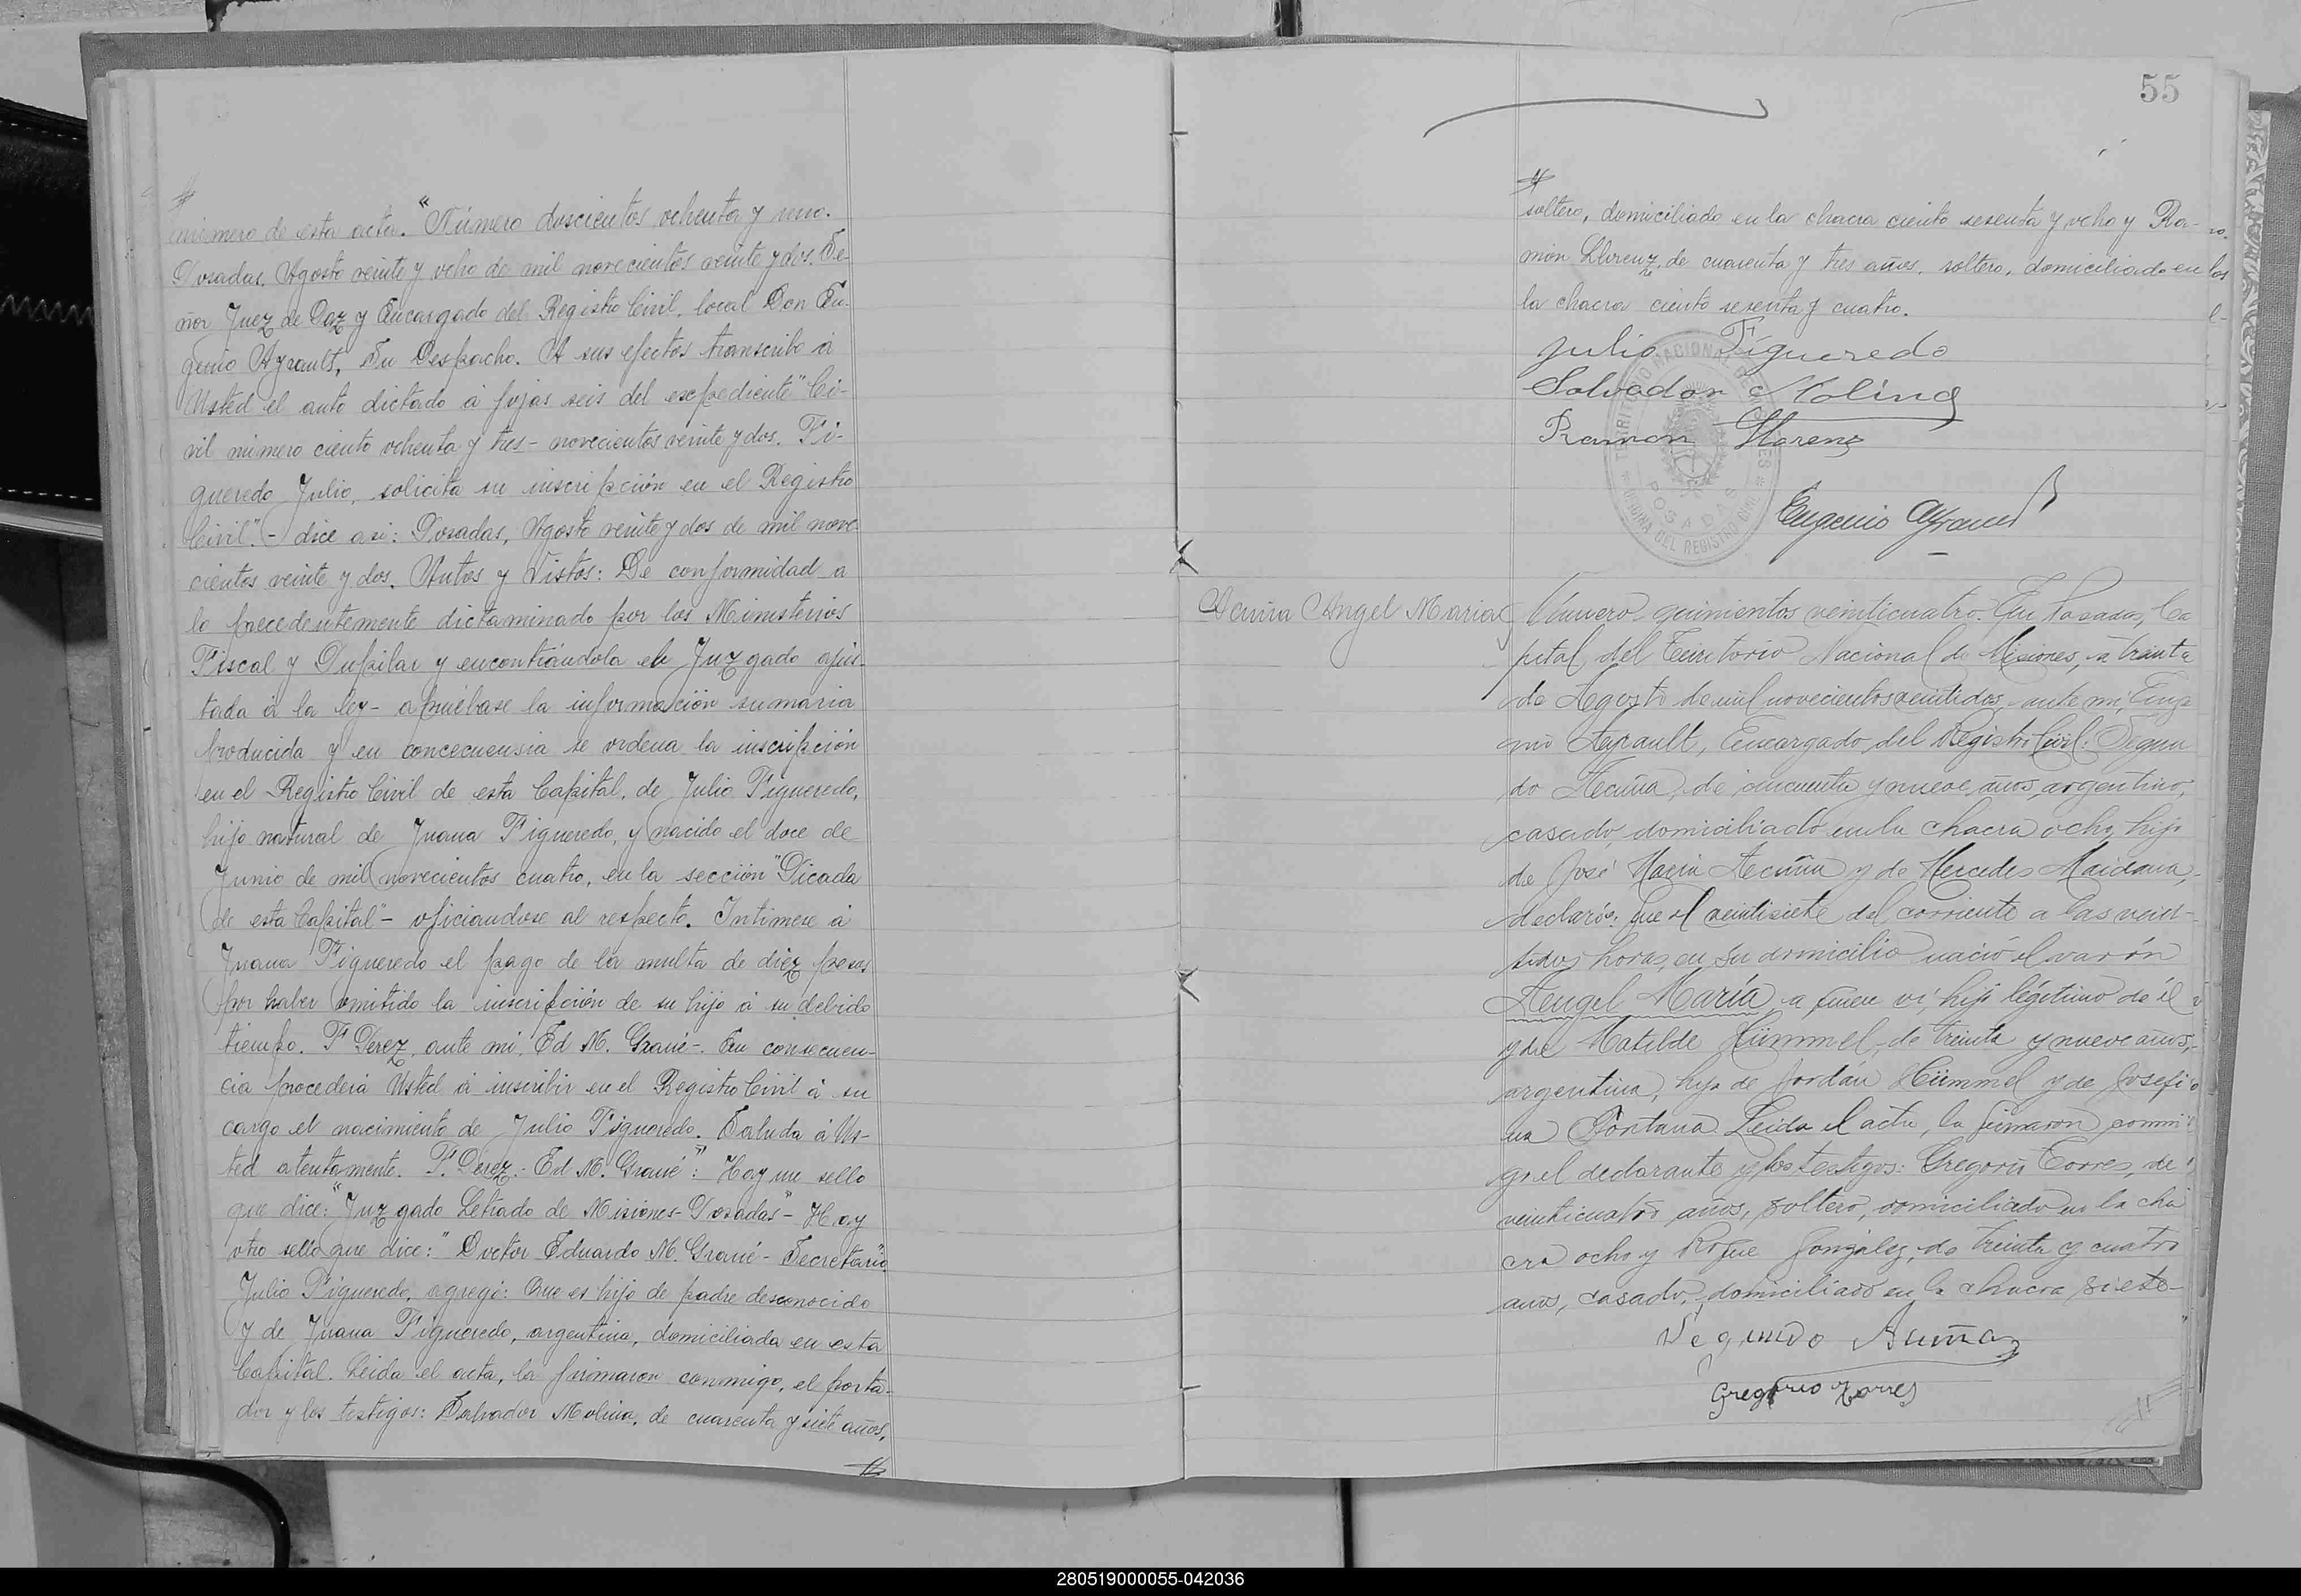 número de esta acta. "Número doscientos ochenta y uno.
Posadas, Agosto veinte y ocho de mil novecientos veinte y dos. Se-
ñor Juez de Paz y Encargado del Registro Civil, local Don Eu-
genio Ayrault, Su Despacho. A sus efectos transcribo á
Usted el auto dictado á fojas seis del expediente "Ci-
vil número ciento ochenta y tres - novecientos veinte y dos. Fi-
gueredo Julio, solicita su inscripción en el Registro
Civil". - dice asi: Posadas, Agosto veinte y dos de mil nove-
cientos veinte y dos. Autos y Vistos: De conformidad a
lo precedentemente dictaminado por los Ministerios
Fiscal y Pupilar y encontrándola el Juzgado ajus-
tada á la ley - apruébase la información sumaria
producida y en concecuensia se ordena la inscripción
en el Registro Civil de esta Capital, de Julio Figueredo,
hijo natural de Juana Figueredo, y nacido el doce de
Junio de mil novecientos cuatro, en la sección "Picada
de esta Capital" - oficiandose al respecto. Intimese á
Juana Figueredo el pago de la multa de diez pesos
por haber omitido la inscripción de su hijo á su debido
tiempo. F. Perez, ante mi, Ed M. Grané -. En consecuen-
cia procederá Usted á inscribir en el Registro Civil á su
cargo el nacimiento de Julio Figueredo. Saluda á Us-
ted atentamente. F. Perez. - Ed M. Grané": Hay un sello
que dice: "Juzgado Letrado de Misiones - Posadas" - Hay
otro sello que dice: "Doctor Eduardo M. Grané - Secretario".
Julio Figueredo, agregó: Que es hijo de padre desconocido
y de Juana Figueredo, argentina, domiciliada en esta
Capital. Leida el acta, la firmaron conmigo, el porta-
dor y los testigos: Salvador Molina, de cuarenta y siete años,
55
soltero, domiciliado en la chacra ciento sesenta y ocho y Ra-
món Llorenz, de cuarenta y tres años, soltero, domiciliado en
la chacra ciento sesenta y cuatro.
Julio Figueredo
Salvador Molina
Ramon Llorenz
TERRITORIO NACIONAL DE MISIONES
POSADAS
OFICINA DEL REGISTRO CIVIL
Eugenio Ayrault
Acuña Angel Maria
Número quinientos veinticuatro. En Posadas, Ca
pital del Territorio Nacional de Misiones, a treinta
de Agosto de mil novecientos veintidos, ante mi, Euge
nio Ayrault, Encargado del Registro Civil: Segun
do Acuña, de cincuenta y nueve años, argentino,
casado, domiciliado en la chacra ocho, hijo
de José María Acuña y de Mercedes Maidana,
declaró: Que el veintisiete del corriente a las vein-
tidos horas, en su domicilio nació el varón
Angel María a quien ví, hijo légitimo de él
y de Matilde Hümmel, de treinta y nueve años,
argentina, hija de Jordán Hümmel y de Josefi
na Fontana. Leida el acta, la firmaron conmi
go el declarante y los testigos: Gregorio Torres, de
veinticuatro años, soltero, domiciliado en la cha
cra ocho y Roque González, de treinta y cuatro
años, casado, domiciliado en la chacra siete -
Segundo Acuña
Gregorio Torres
280519000055-042036